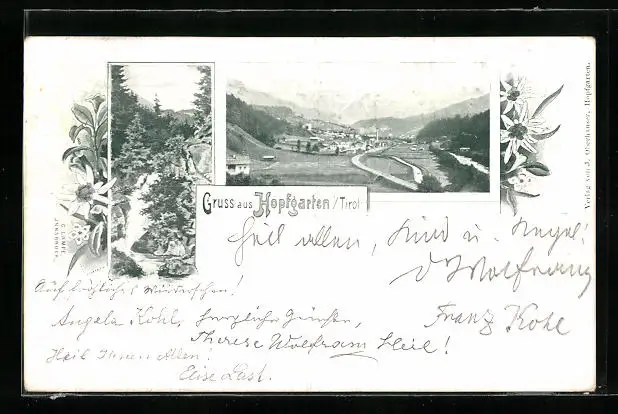 Gruss aus Hopfgarten / Tirol
Verlag von J. Oberhauser, Hopfgarten.
C. LAMPE
INNSBRUCK.
Heil allen, Kind u. Kegel!
Wolfram
Auf fröhliches Wiedersehen!
Angela Kohl, herzliche Grüsse,
Franz Kohl
Therese Wolfram Heil!
Heil Ihnen Allen!
Elise